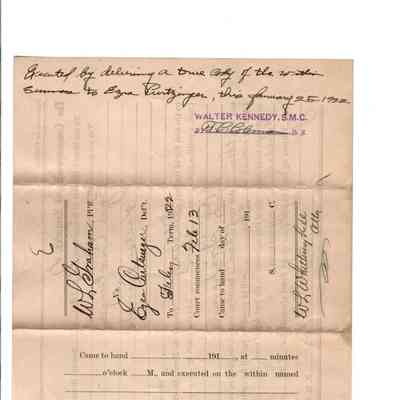 Executed by delivering a true copy of the within
Summons to Ezra Puntzinger, this January 25 1922
WALTER KENNEDY, S.M.C.
D.S.
W L Graham, Pl'ff
Vs.
Ezra Def't.
To Feby Term, 1922
Court commences Feb 13
Came to hand day of
, 191
S. C.
W L Whittinghill
Atty
Came to hand 191 , at minutes
o'clock M., and executed on the within named